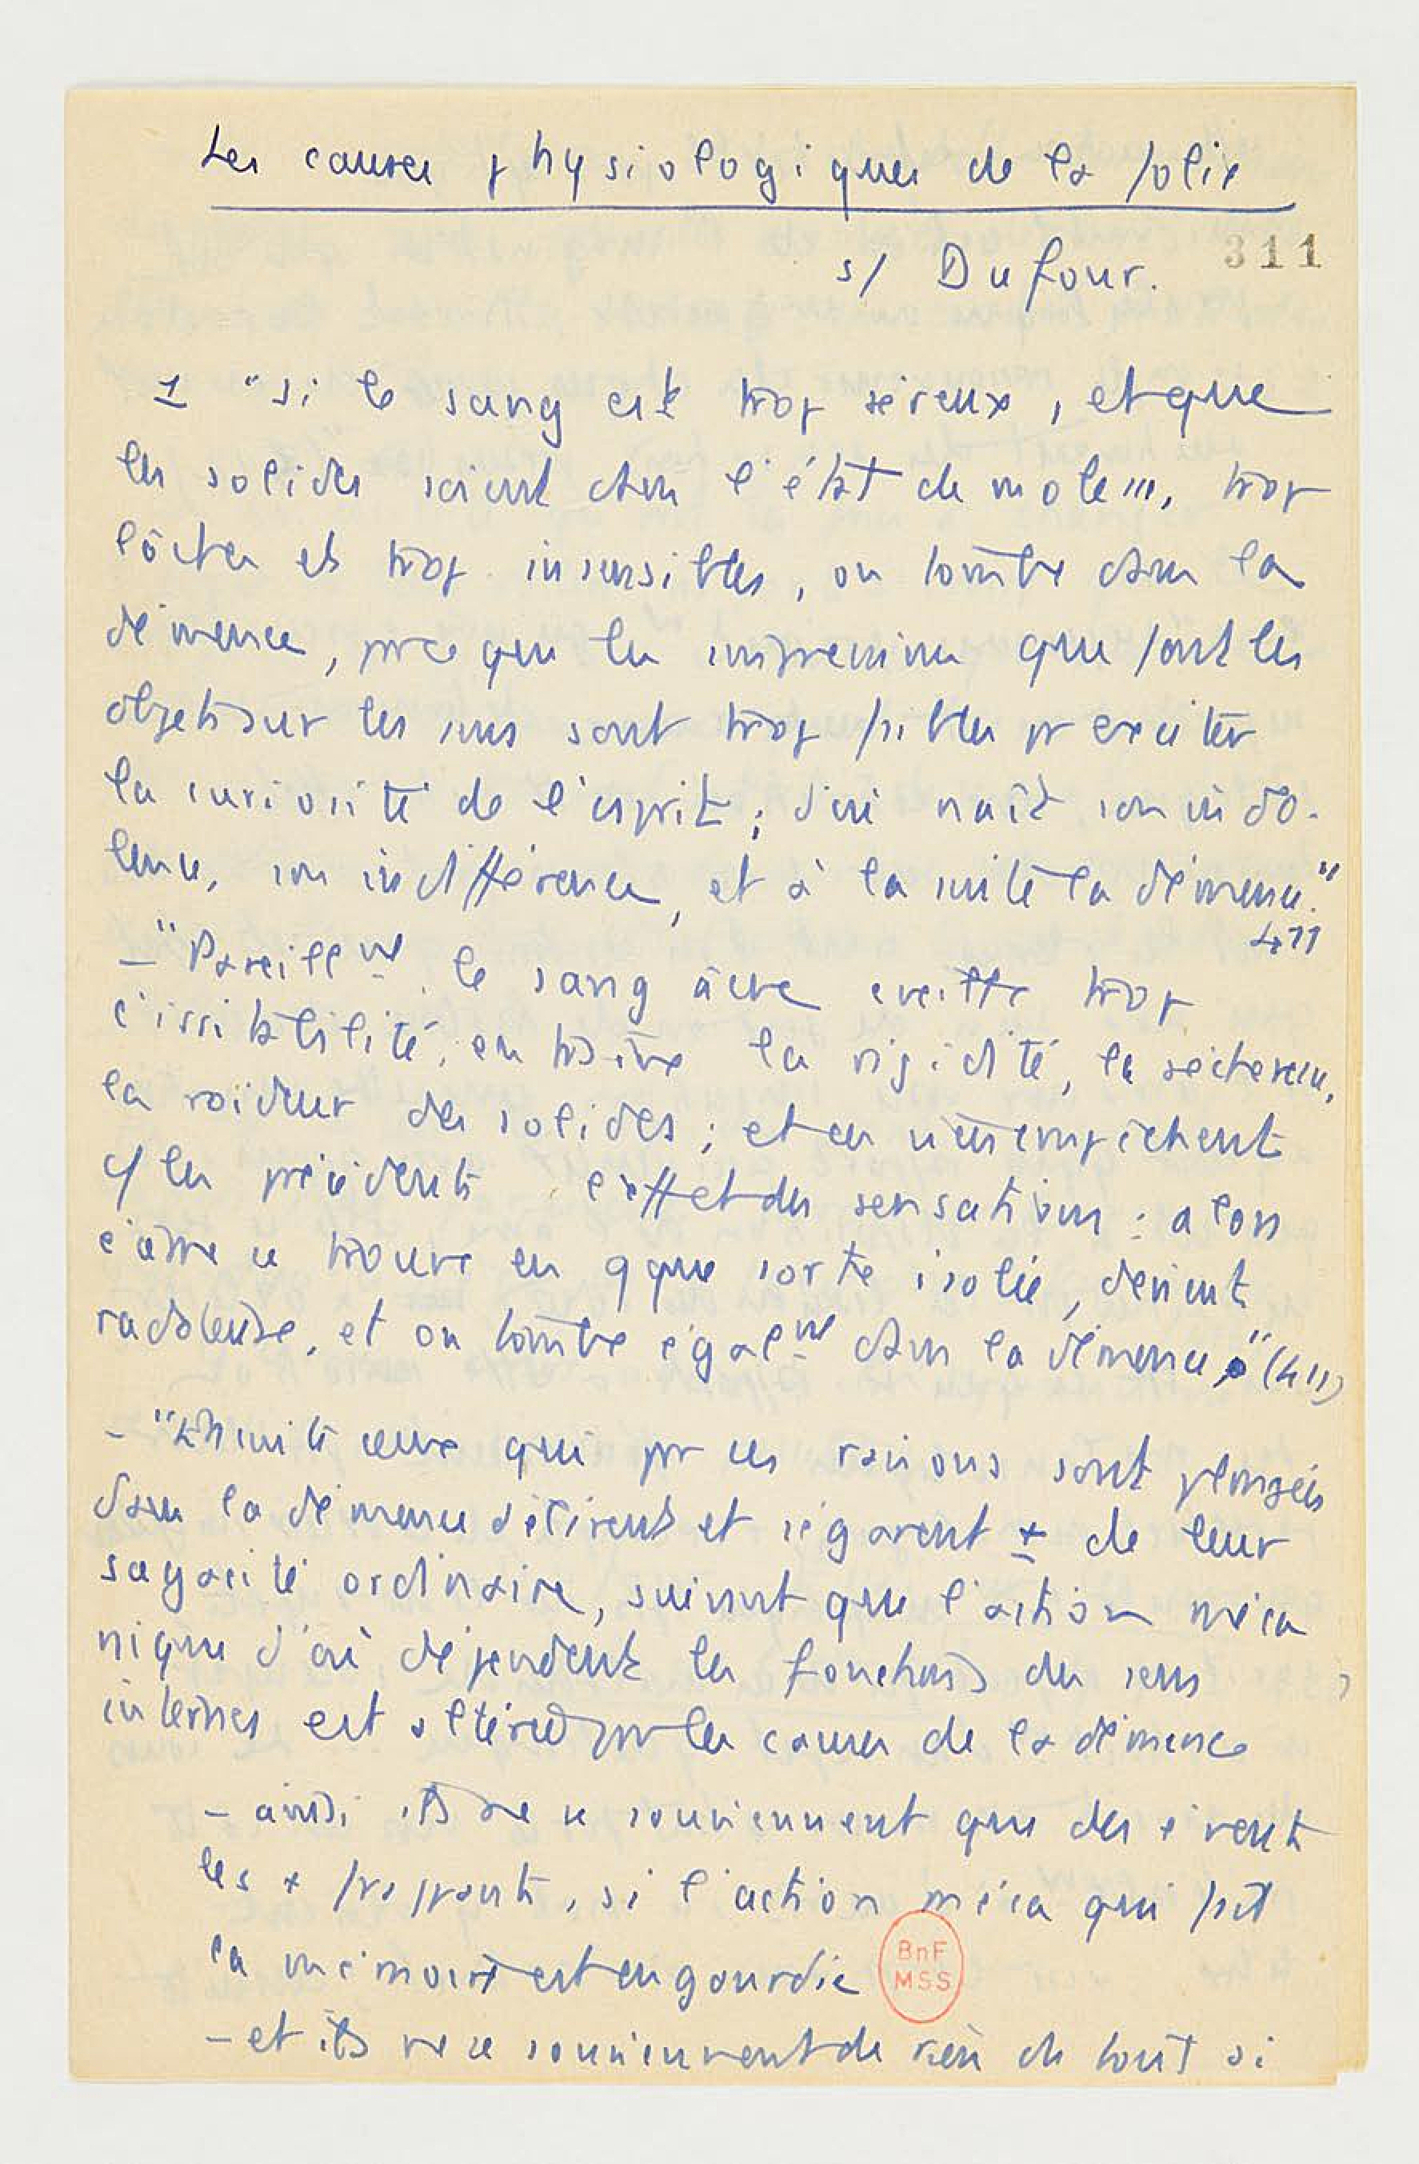 Les causes physiologiques de la folie
311
s/ Dufour.
1 "si le sang est trop séreux, et que
les solides soient dans l'état de molesse, trop
lâches et trop insensibles, on tombe dans la
démence, pce que les impressions que font les
objets sur les sens sont trop faibles pr exciter
la curiosité de l'esprit ; d'où naît son indo-
lence, son indifférence, et à la suite la démence."
411
- "Pareillmt le sang âcre excite trop
l'irritabilité, entraîne la rigidité, la sécheresse,
la roideur des solides ; et ces vices empêchent
c/ les précédents l'effet des sensations : alors
l'âme se trouve en qque sorte isolée, devient
radoteuse, et on tombe égalmt dans la démence" (411)
- "Ensuite ceux qui pr ces raisons sont plongés
dans la démence délirent et s'égarent + de leur
sagacité ordinaire, suivant que l'action méca
nique d'où dépendent les fonctions des sens
internes est altérée par les causes de la démence
- ainsi ils ne se souviennent que des évents
les + frappants, si l'action méca qui fait
la mémoire est engourdie
BnF
MSS
- et ils ne se souviennent de rien du tout si